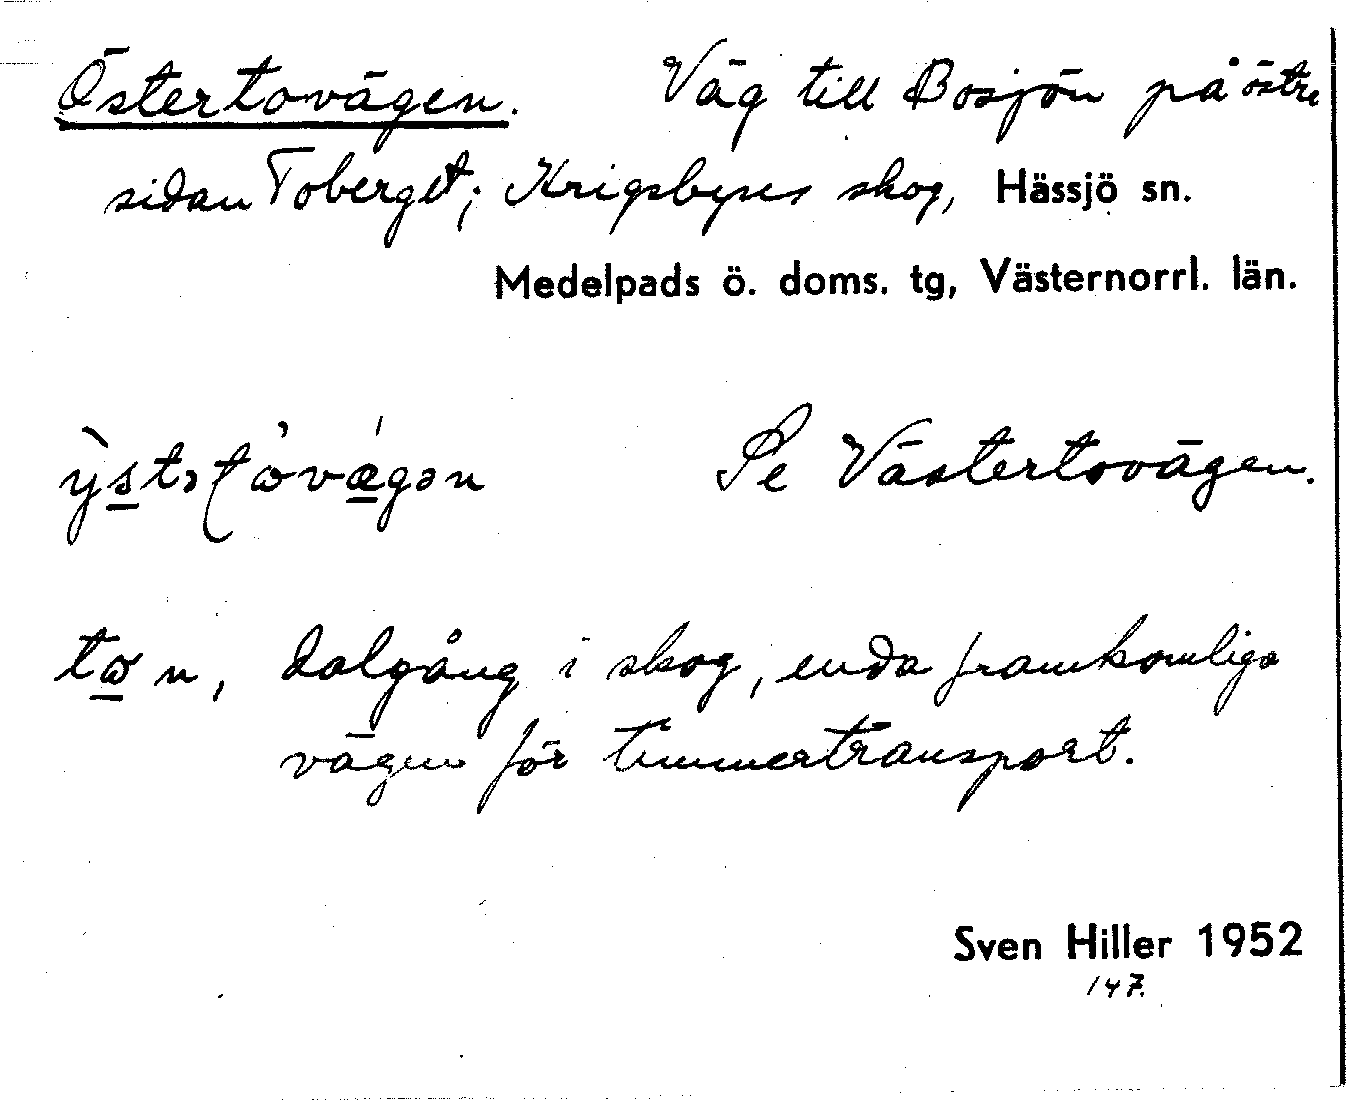 Östertovägen. Väg till Bosjön på östra
sidan Toberget; Krigsbyns skog, Hässjö sn.
Medelpads ö. doms. tg, Västernorrl. län.
Se Västertovägen.
n, dalgång i skog, enda framkomliga
vägen för timmertransport.
Sven Hiller 1952
147.